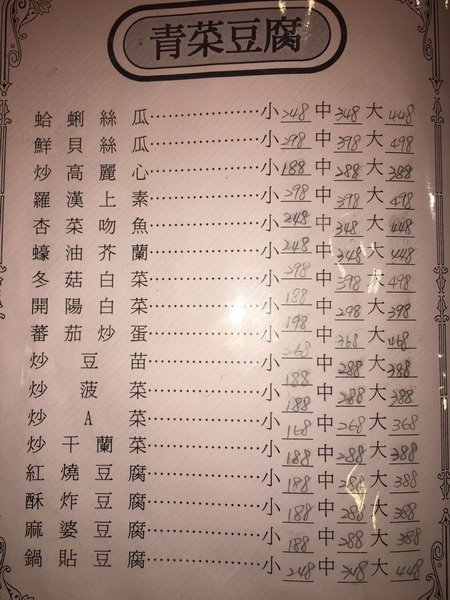 青菜豆腐
蛤蜊絲瓜⋯⋯⋯⋯⋯小248中348大448
鮮貝絲瓜⋯⋯⋯⋯⋯小298中398大498
炒高麗心⋯⋯⋯⋯⋯小188中288大388
羅漢上素⋯⋯⋯⋯⋯小298中398大498
杏菜吻魚⋯⋯⋯⋯⋯小248中348大448
蠔油芥蘭⋯⋯⋯⋯⋯小248中348大448
冬菇白菜⋯⋯⋯⋯⋯小298中398大498
開陽白菜⋯⋯⋯⋯⋯小198中298大398
蕃茄炒蛋⋯⋯⋯⋯⋯小268中368大468
炒豆苗⋯⋯⋯⋯⋯小188中288大388
炒菠菜⋯⋯⋯⋯⋯小188中288大388
炒A菜⋯⋯⋯⋯⋯小168中268大368
炒干蘭菜⋯⋯⋯⋯⋯小188中288大388
紅燒豆腐⋯⋯⋯⋯⋯小188中288大388
酥炸豆腐⋯⋯⋯⋯⋯小188中288大388
麻婆豆腐⋯⋯⋯⋯⋯小188中288大388
鍋貼豆腐⋯⋯⋯⋯⋯小248中348大448